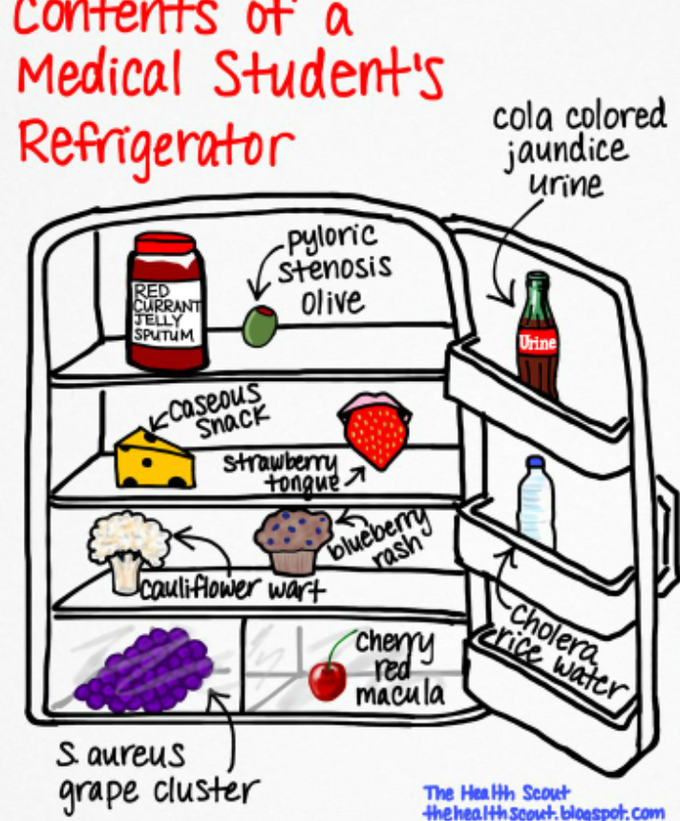 Contents of a
Medical Student's
Refrigerator
cola colored
jaundice
urine
pyloric
stenosis
olive
RED
CURRANT
JELLY
SPUTUM
Urine
caseous
snack
strawberry
tongue
blueberry
rash
cauliflower wart
cholera
rice water
cherry
red
macula
S. aureus
grape cluster
The Health Scout
thehealthscout.blogspot.com